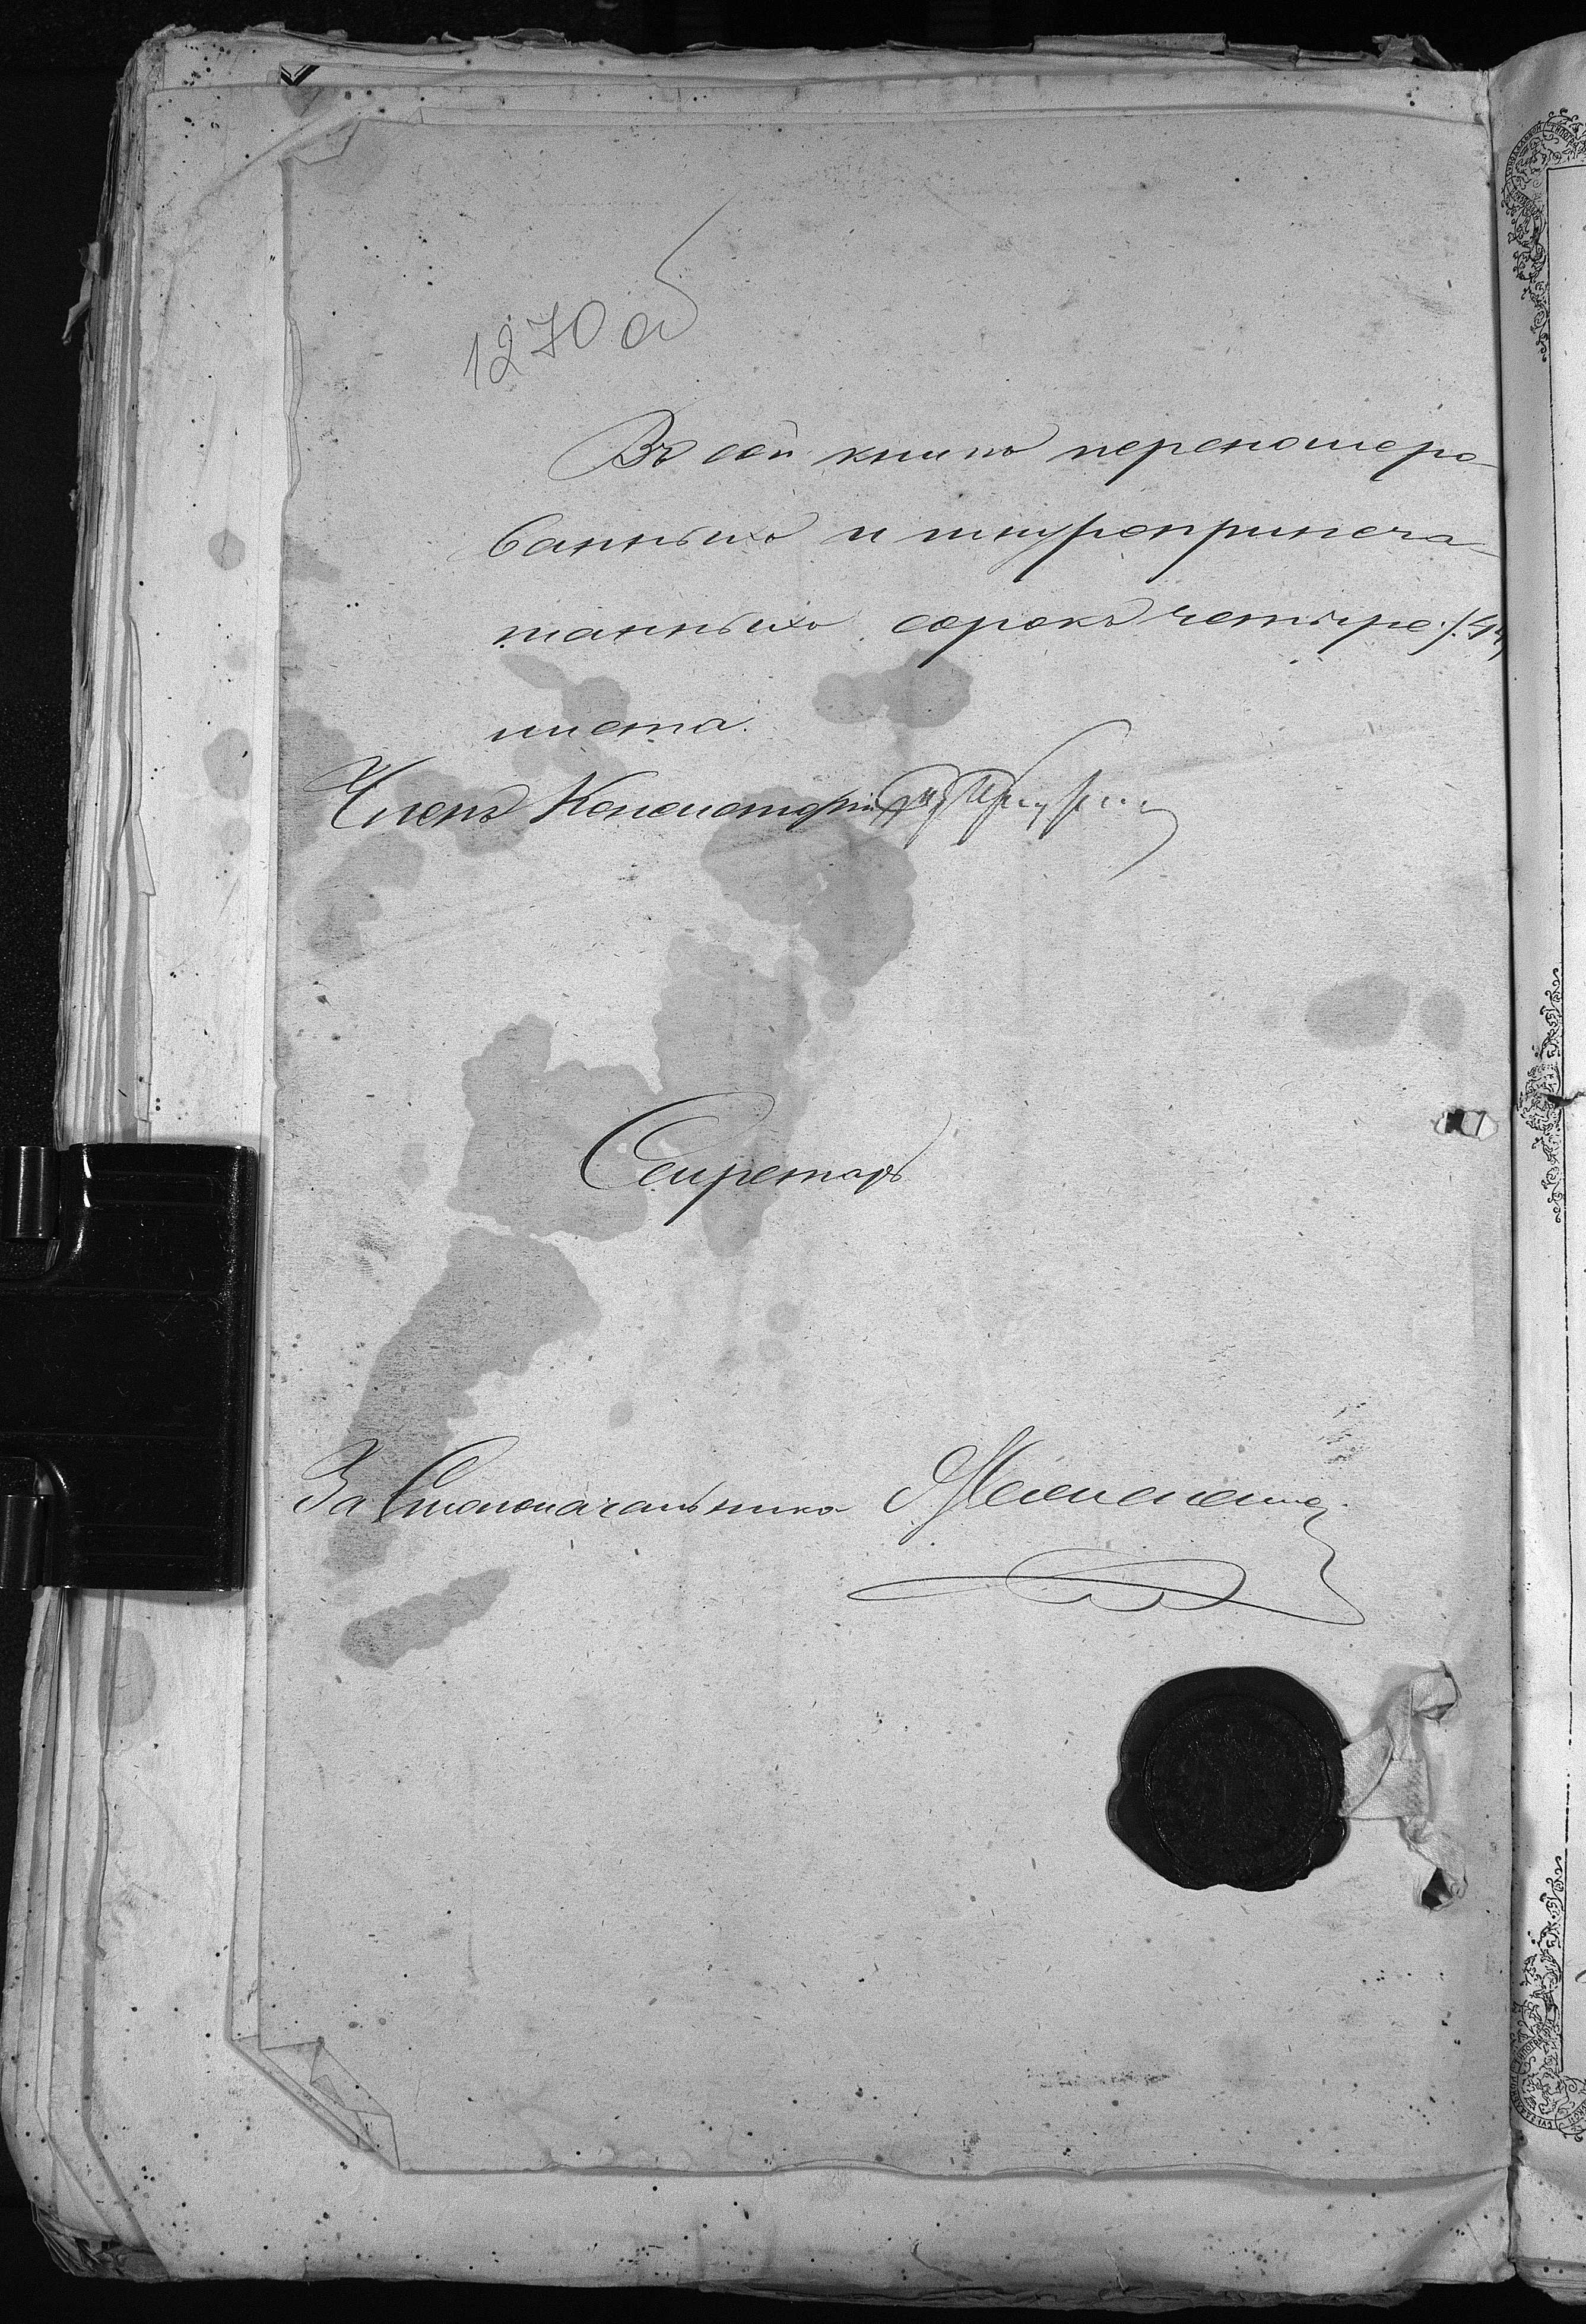 1270 об
Въ сей книгѣ перенумеро-
ванныхъ и шнуроприпеча-
танныхъ сорокъ четыре /44/
листа.
Членъ Консисторіи
Секретарь
За Столоначальника